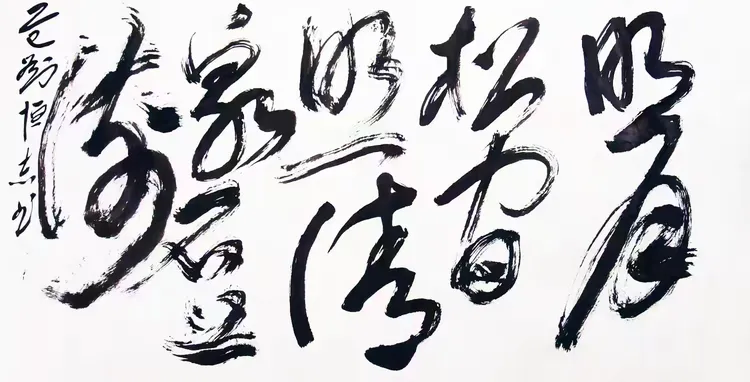 明月
松間
照清
泉石上
流
恒志书